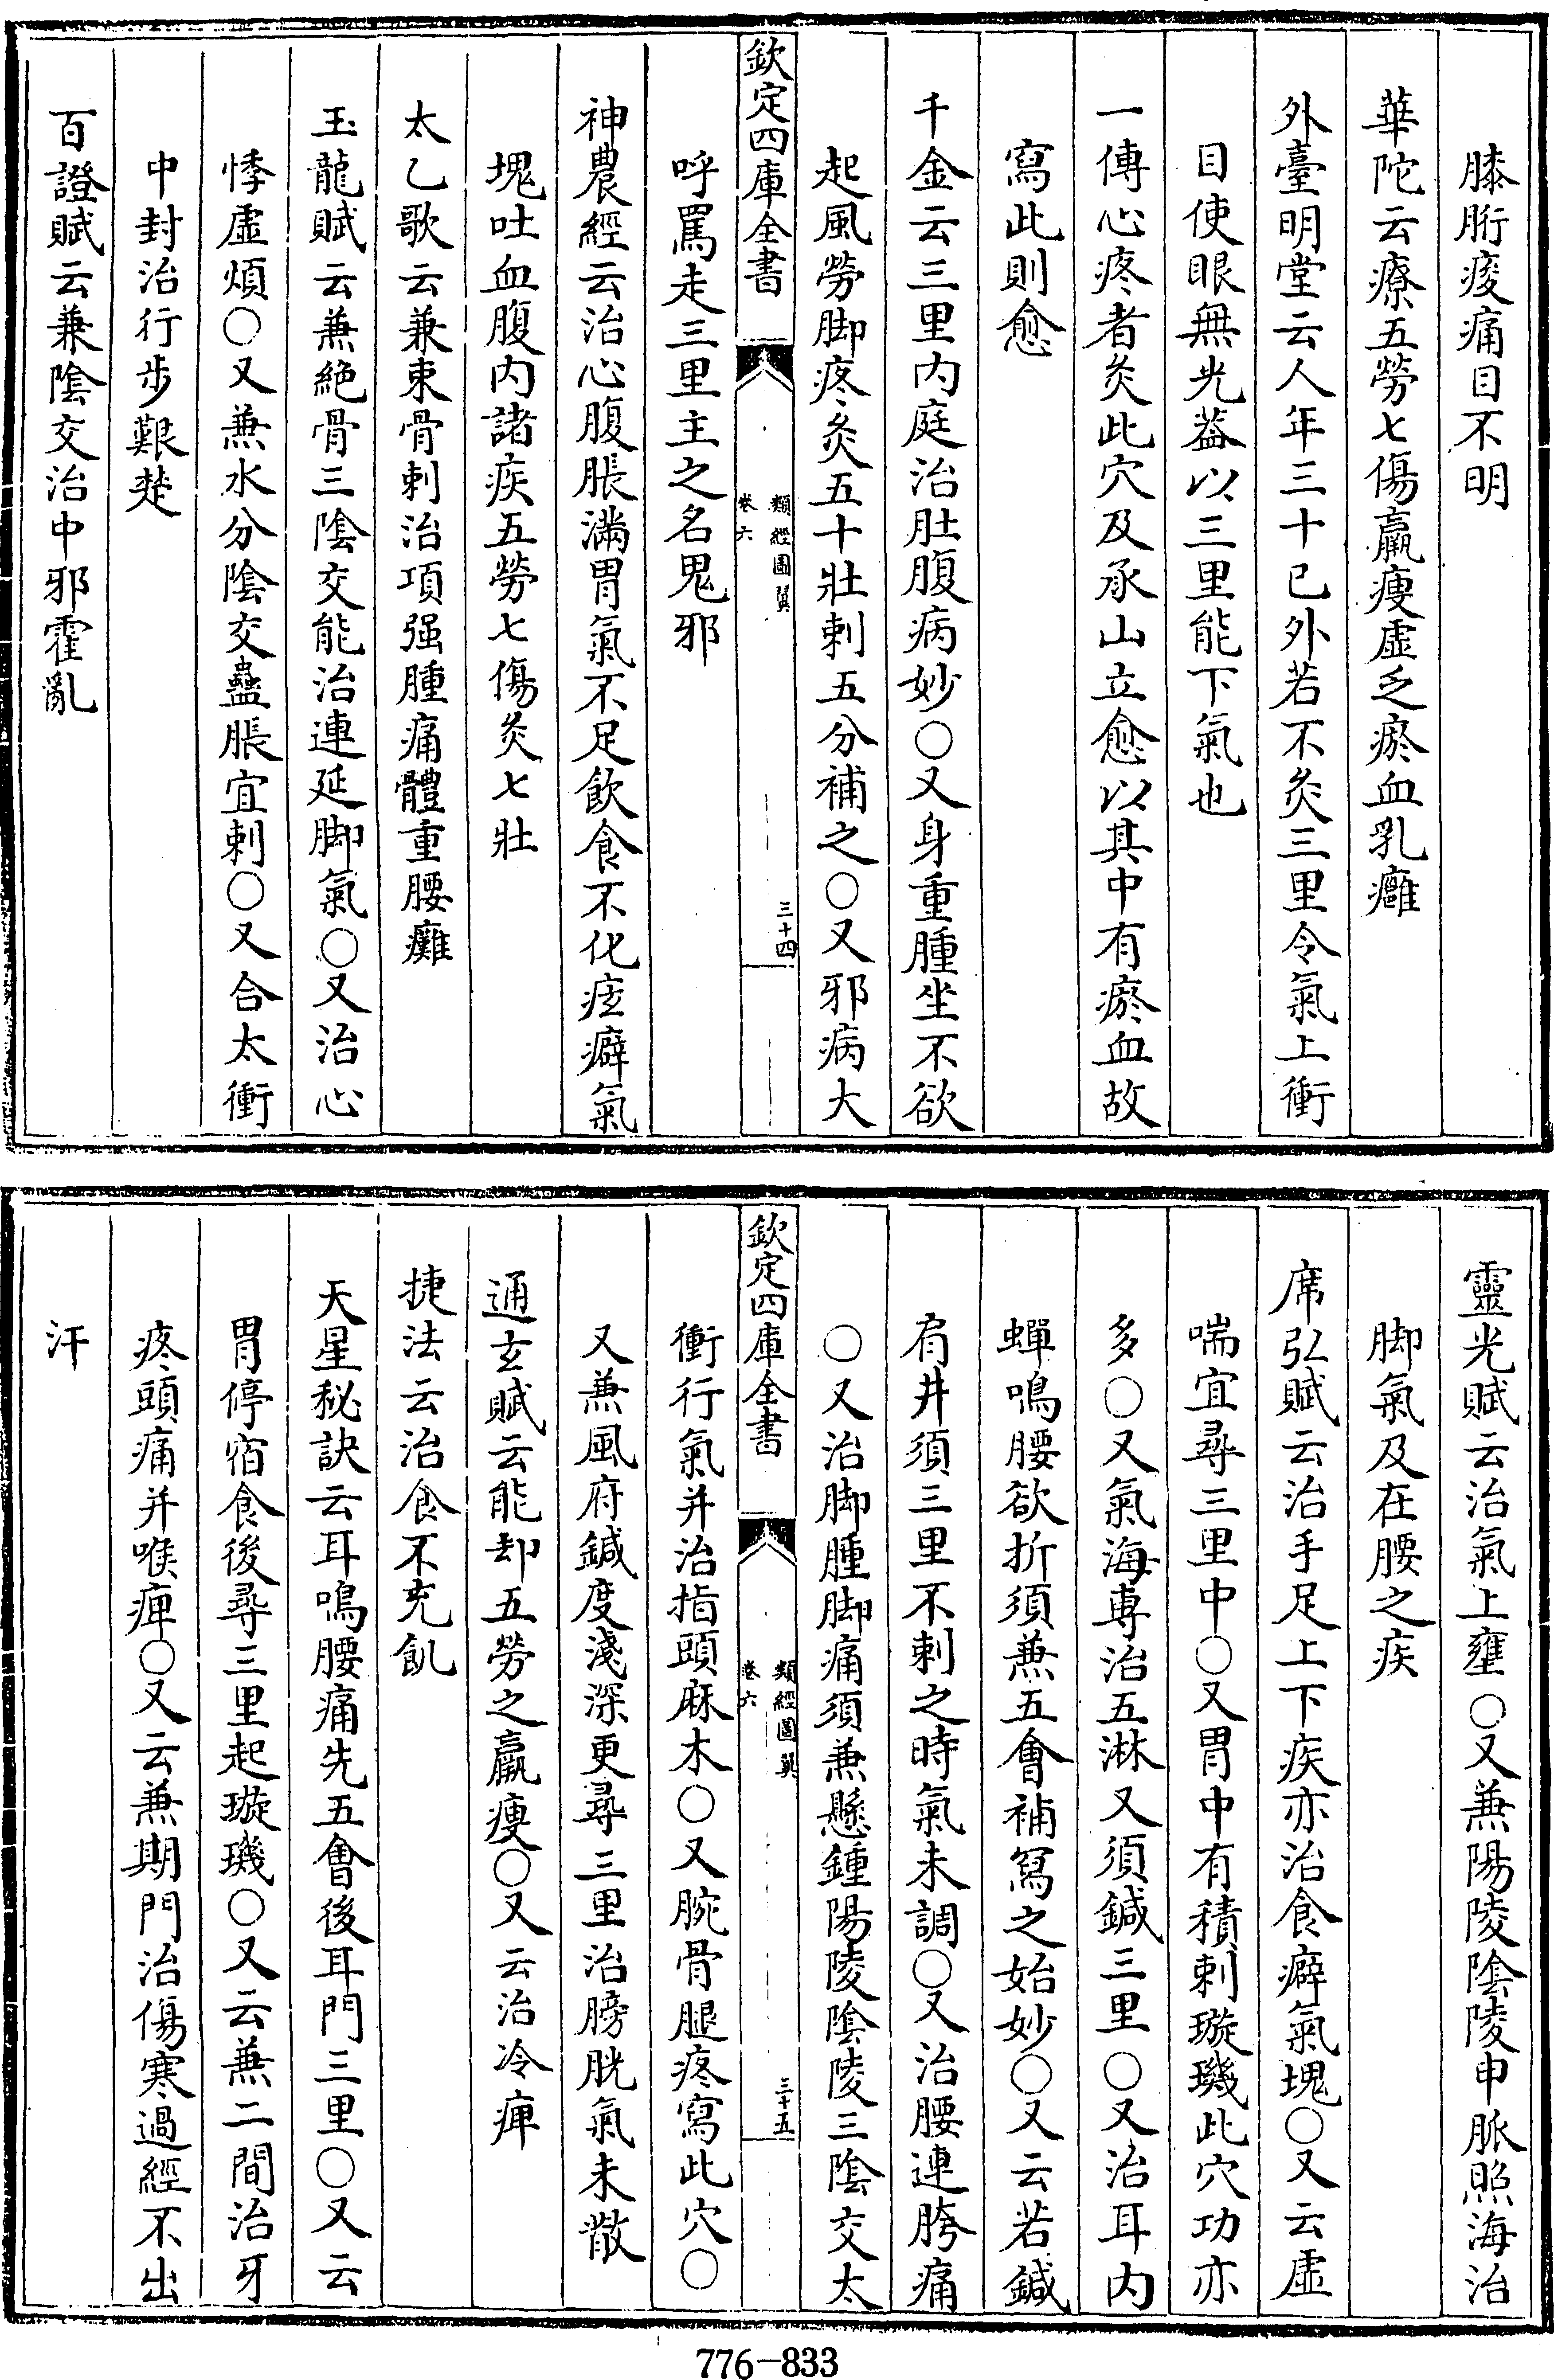 膝胻痠痛目不明
華陀云療五勞七傷羸瘦虛乏瘀血乳癰
外臺明堂云人年三十已外若不灸三里令氣上衝
目使眼無光蓋以三里能下氣也
一傳心疼者灸此穴及承山立愈以其中有瘀血故
寫此則愈
千金云三里内庭治肚腹病妙〇又身重腫坐不欲
起風勞脚疼灸五十壯刺五分補之〇又邪病大
欽定四庫全書
類經圖翼
卷六
三十四
呼罵走三里主之名鬼邪
神農經云治心腹脹滿胃氣不足飲食不化痃癖氣
塊吐血腹内諸疾五勞七傷灸七壯
太乙歌云兼束骨刺治項强腫痛體重腰癱
玉龍賦云兼絶骨三陰交能治連延脚氣〇又治心
悸虛煩〇又兼水分陰交蠱脹宜刺〇又合太衝
中封治行步艱楚
百證賦云兼陰交治中邪霍亂
靈光賦云治氣上壅〇又兼陽陵陰陵申脈照海治
脚氣及在腰之疾
席弘賦云治手足上下疾亦治食癖氣塊〇又云虛
喘宜尋三里中〇又胃中有積刺璇璣此穴功亦
多〇又氣海專治五淋又須鍼三里〇又治耳内
蟬鳴腰欲折須兼五會補寫之始妙〇又云若鍼
肩井須三里不刺之時氣未調〇又治腰連胯痛
〇又治脚腫脚痛須兼懸鍾陽陵陰陵三陰交太
欽定四庫全書
類經圖翼
卷六
三十五
衝行氣并治指頭麻木〇又腕骨腿疼寫此穴〇
又兼風府鍼度淺深更尋三里治膀胱氣未散
通玄賦云能却五勞之羸瘦〇又云治冷痺
捷法云治食不充飢
天星秘訣云耳鳴腰痛先五會後耳門三里〇又云
胃停宿食後尋三里起璇璣〇又云兼二間治牙
疼頭痛并喉痺〇又云兼期門治傷寒過經不出
汗
776-833